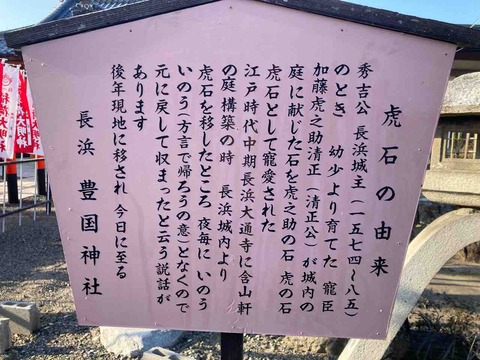 虎石の由来
秀吉公 長浜城主(一五七四~八五)
のとき 幼少より育てた 寵臣
加藤虎之助清正(清正公)が城内の
庭に献じた石を虎之助の石 虎の石
虎石として寵愛された
江戸時代中期長浜大通寺に含山軒
の庭構築の時 長浜城内より
虎石を移したところ 夜毎に いのう
いのう(方言で帰ろうの意)となくので
元に戻して収まったと云う説話が
あります
後年現地に移され 今日に至る
長浜 豊国神社